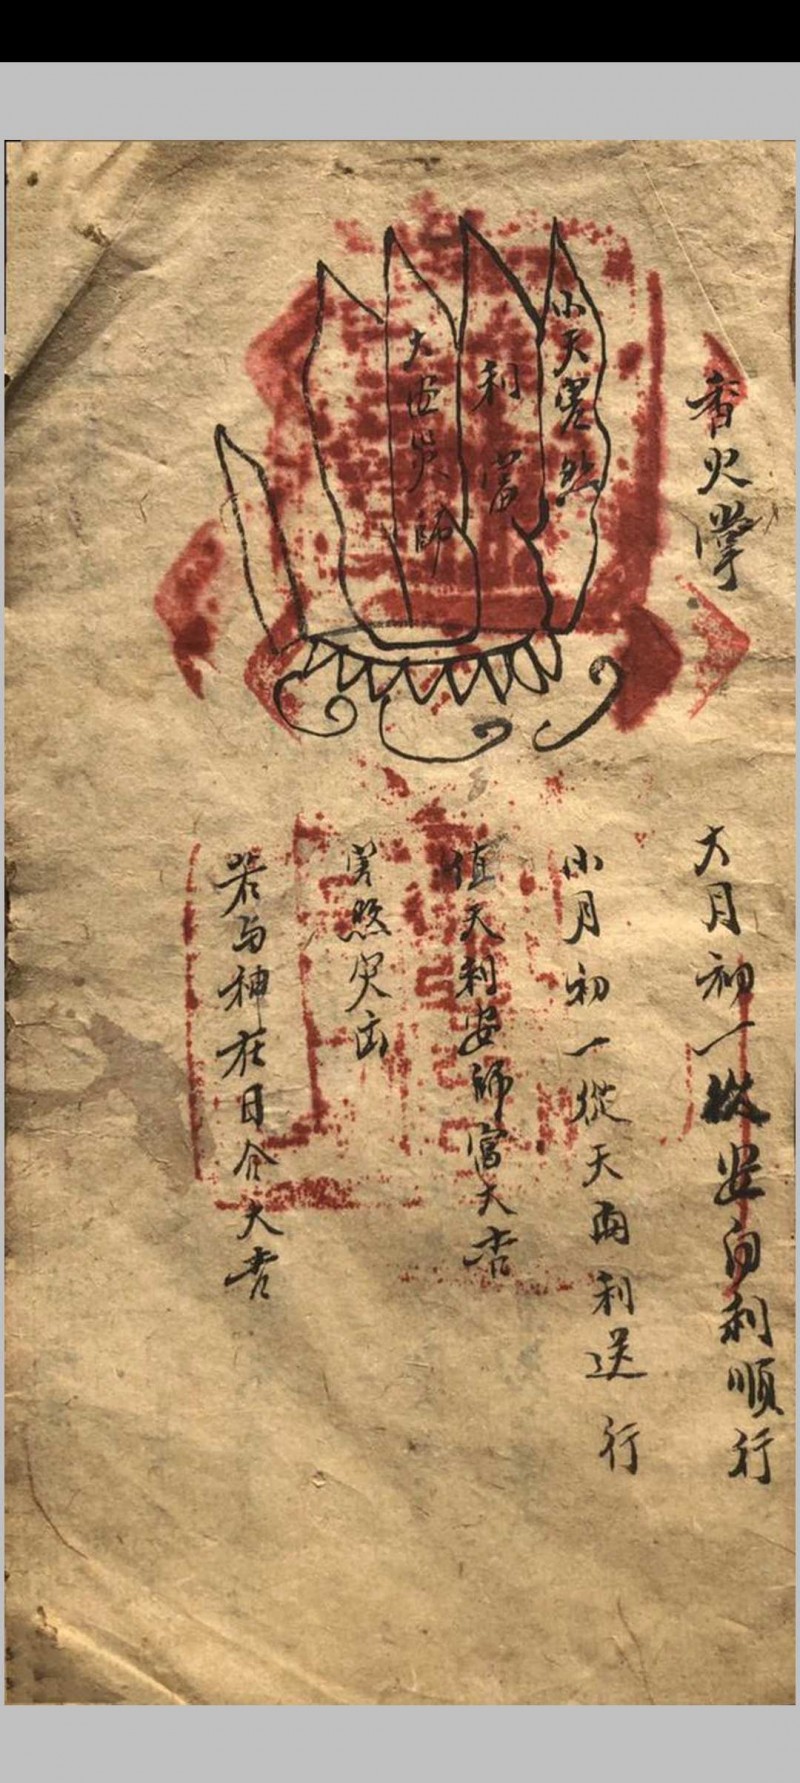 香火掌
小天害然
利富
大安災師
大月初一從安向利順行
小月初一從天向利送行
值天利安師富大吉
害然災凶
若与神在日合大吉